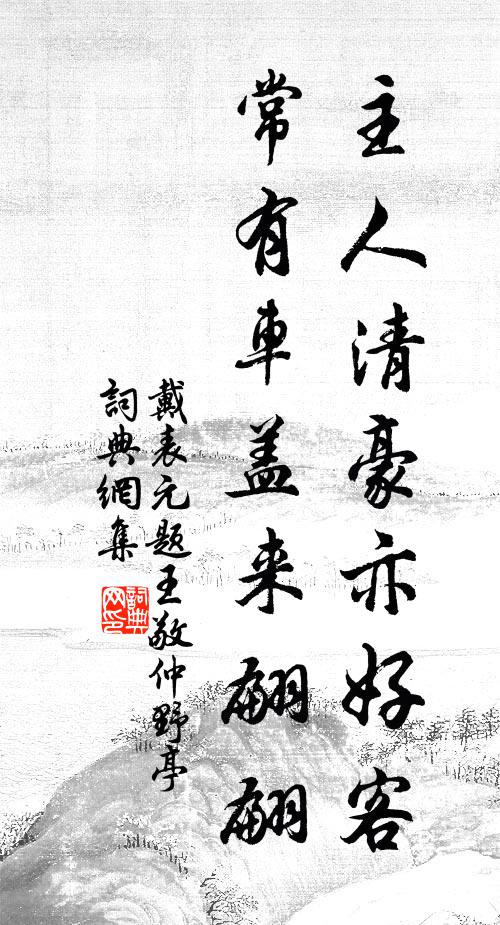 主人清豪亦好客
常有車盖来翩翩
戴表元题王敬仲野亭
詞典網集
詞典網印